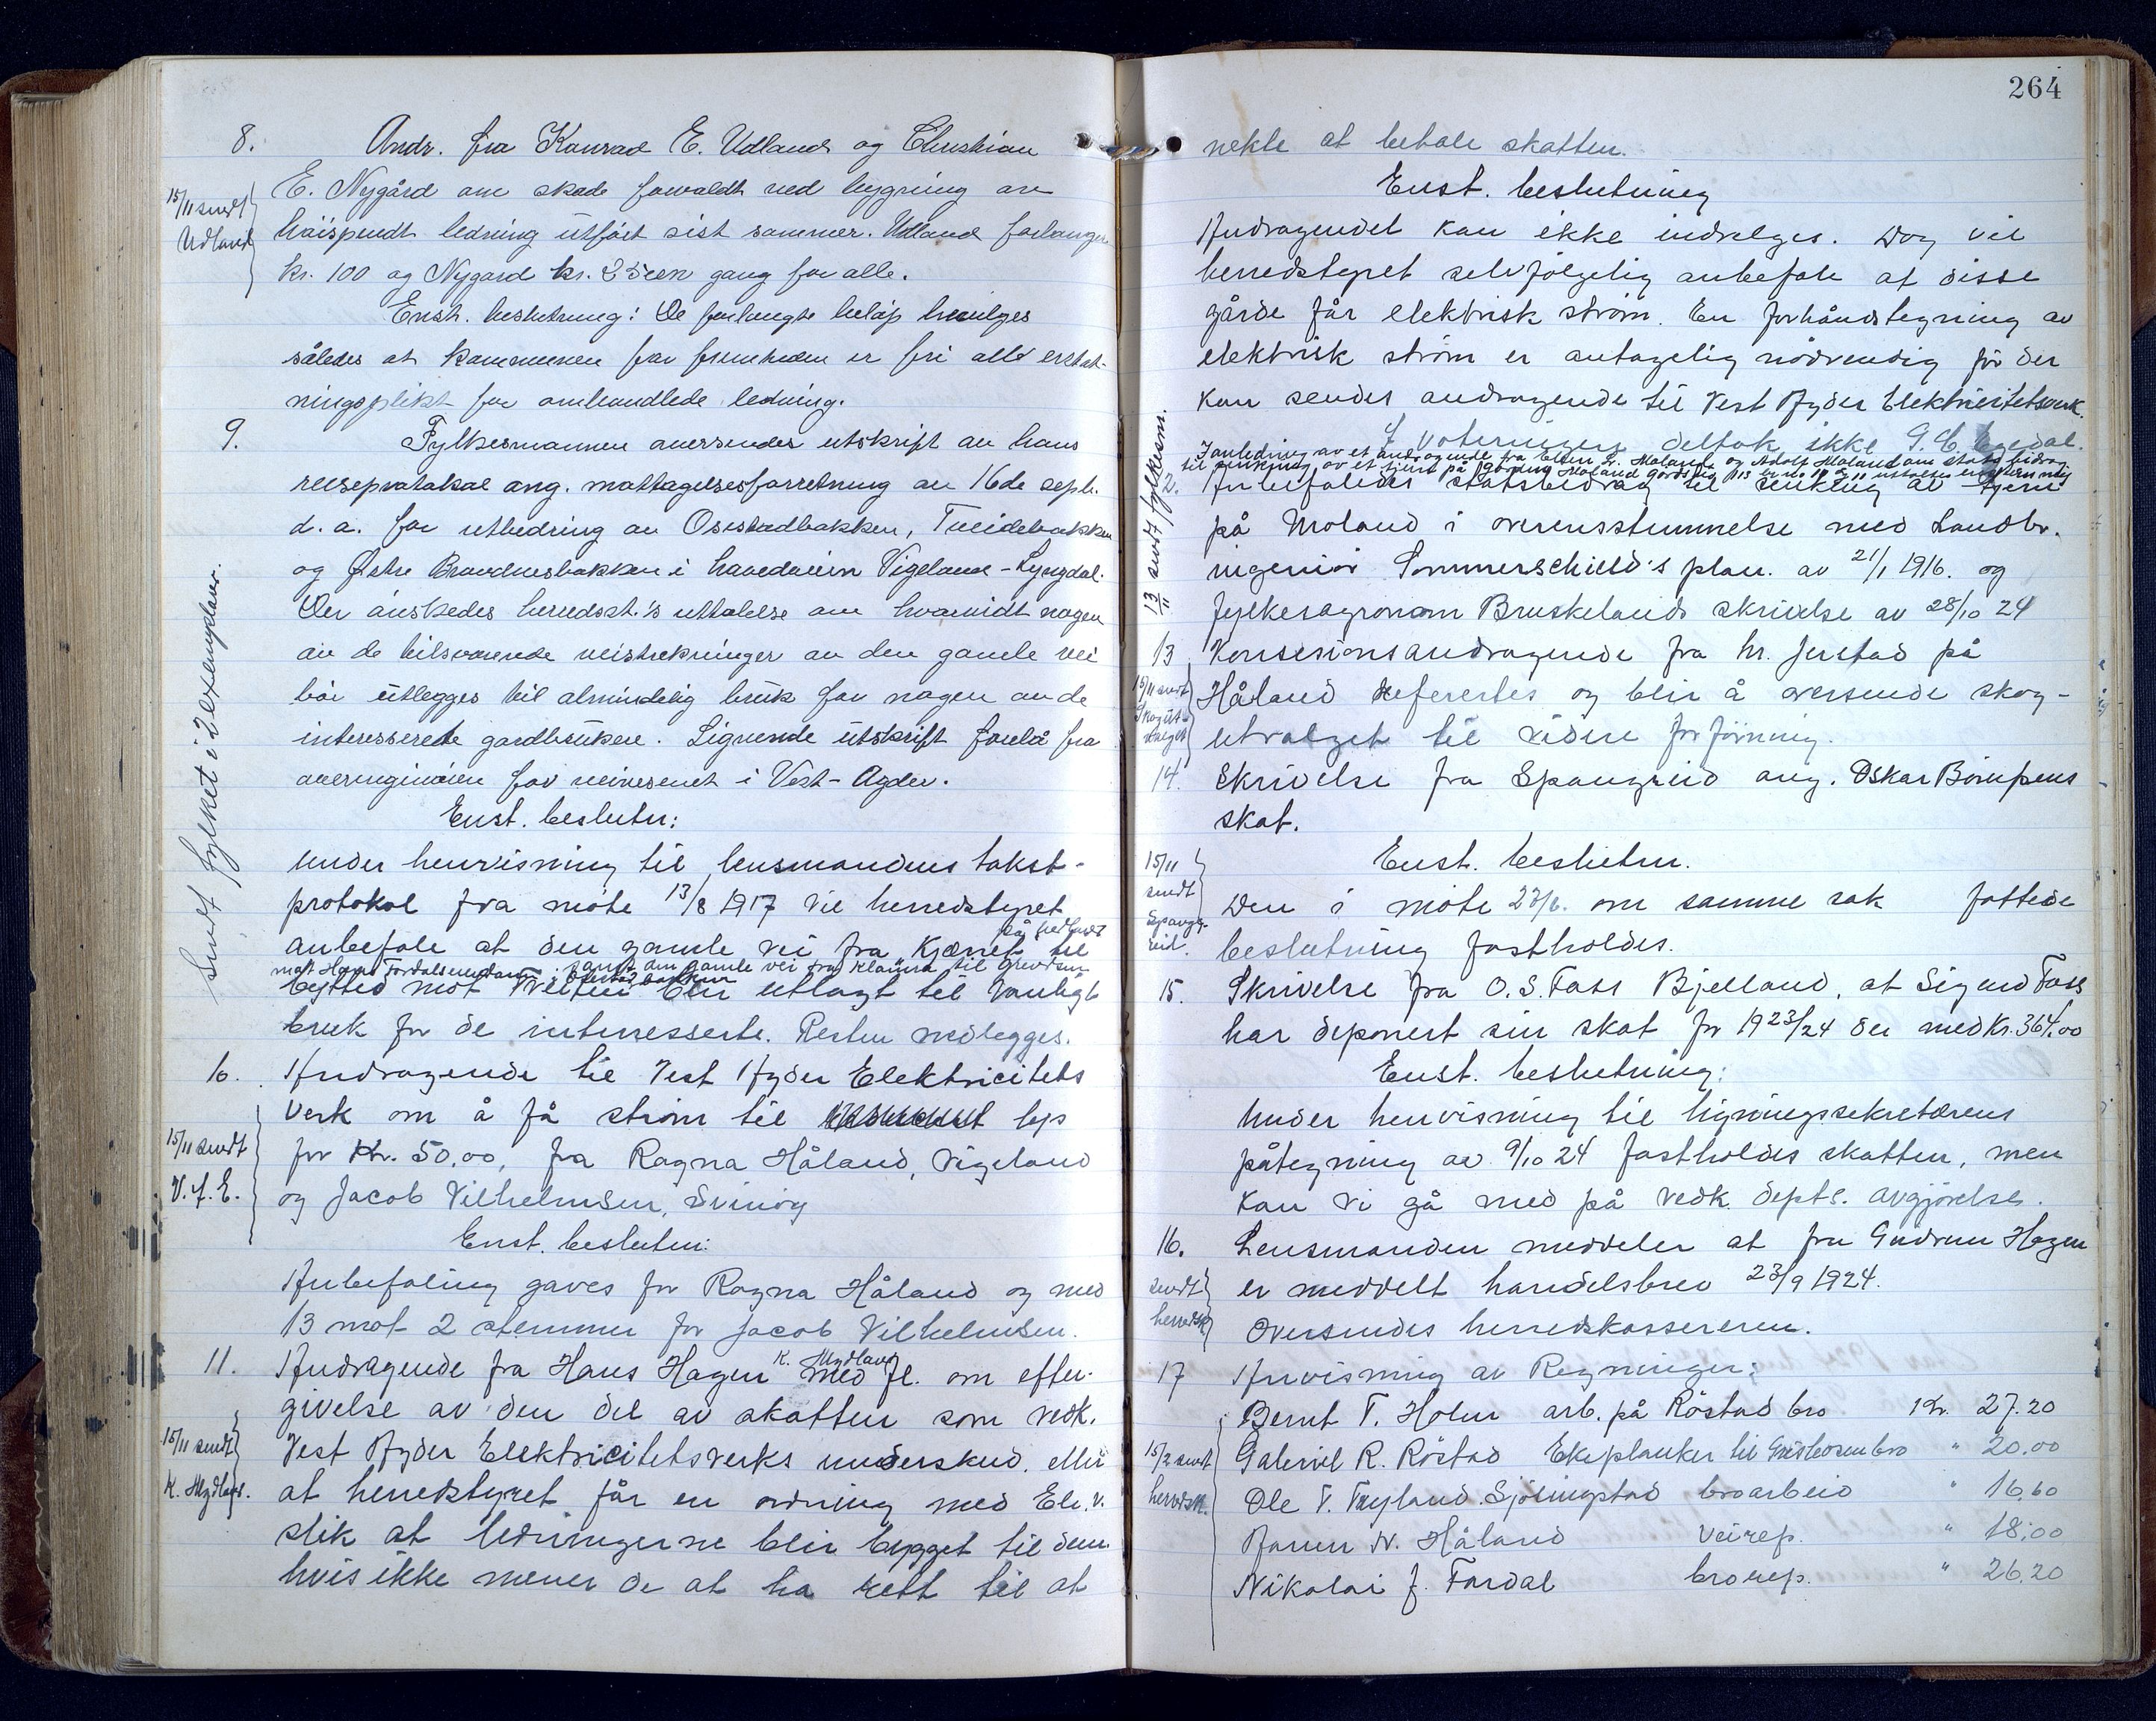 8. Andr. fra Konrad E. Udland og Christian
E. Nygård om skade forvoldt ved bygning av
höispendt ledning utfört sist sommer. Udland forlanger
kr. 100 og Nygard kr. 25 een gang for alle.
15/11 sendt Udland
Enst. beslutning: De forlangte belöp bevilges
således at kommunen for fremtiden er fri alt erstat-
ningsplikt for omhandlede ledning.
9. Fylkesmannen oversender utskrift av hans
reiseprotokol ang. mottagelsesforretning av 16de sept.
d. a. for utbedring av Osestadbakken, Tveidebakken
og Østre Brovdnesbakken i hovedveien Vigeland - Lyngdal.
Der önskedes herredsst.'s uttalelse om hvorvidt nogen
av de tilsvarende veistrekninger av den gamle vei
bör utlegges til almindelig bruk for nogen av de
interesserede gardbrukere. Lignende utskrift forelå fra
overingeniören for veivesenet i Vest-Agder.
Sendt fylket i 2 exemplarer.
Enst. beslutn:
under henvisning til lensmandens takst-
protokol fra möte 13/8 1917 vil herredstyret
anbefale at den gamle vei fra Kjæret til
mot Hans Fordalsmedans samt den gamle vei fra Klauva til Grevdsen
bytted mot Tveiten blir utlagt til vanligt
bruk for de interesserte. Resten nedlegges.
10. Andragende til Vest Agder Elektricitets
verk om å få ström til lys
for Kr. 50.00, fra Ragna Håland, Vigeland
og Jacob Vilhelmsen, Svinöy
15/11 sendt V.A.E.
Enst. beslutn:
Anbefaling gaves for Ragna Håland og med
13 mot 2 stemmer for Jacob Vilhelmsen.
11. Andragende fra Hans Hagen K. Mydland med fl. om efter-
givelse av den del av skatten som vedk.
Vest Agder Elektricitetsverks underskud. eller
15/11 sendt K. Mydland.
at herredstyret får en ordning med Ele.v.
slik at ledningerne blir bygget til dem
hvis ikke mener de at ha rett til at
264
nekte at betale skatten.
Enst. beslutning
Andragendet kan ikke indvelges. Dog vil
herredstyret selvfölgelig anbefale at disse
gårde får elektrisk ström. En forhåndstegning av
elektrisk ström er antagelig nödvendig för der
kan sendes andragende til Vest Agder Elektricitetsverk.
I voteringen deltok ikke G. E. Egedal.
I anledning av et andragende fra Elten G. Moland og Adolf Moland om stats bidrag
til senkning av et tjern på
12. Anbefaledes statsbidrag til senkning av tjern
på Moland i overensstemmelse med Landbr.
ingeniör Sommerschield's plan. av 21/1 1916. og
fylkesagronom Bruskelands skrivelse av 28/10 24
13/11 sendt fylkesm.
13 Konsesionsandragende fra hr. Jerstad på
Håland refererles og blir å oversende skog-
utvalget til videre forföining.
15/11 sendt Skogut- valget
14. Skrivelse fra Spangreid ang. Oskar Börupens
skat.
Enst. beslutn.
15/11 sendt Spang- reid.
Den i möte 23/6. om samme sak fattede
beslutning fastholdes.
15. Skrivelse fra O.S. Foss Bjelland, at Sigurd Foss
har deponert sin skat for 1923/24 der med Kr. 364.00
Enst. beslutning:
Under henvisning til ligningssekretærens
påtegning av 9/10 24 fastholdes skatten, men
kan vi gå med på vedk. depts. avgjörelse.
16. Lensmanden meddeler at fru Gudrun Hagen
er meddelt handelsbrev 23/9 1924.
Oversendes herredskassereren.
sendt herredsk
17 Anvisning av Regninger:
Bernt T. Holm arb. på Röstad bro Kr. 27.20
Gabriel R. Röstad Ekeplanker til bro " 20.00
Ole T. Tryland Sjölingstad broarbeid " 16.60
Håland Veirep. " 18.00
Nikolai J. Fordal brorep. " 26.20
15/2 sendt herredsk.